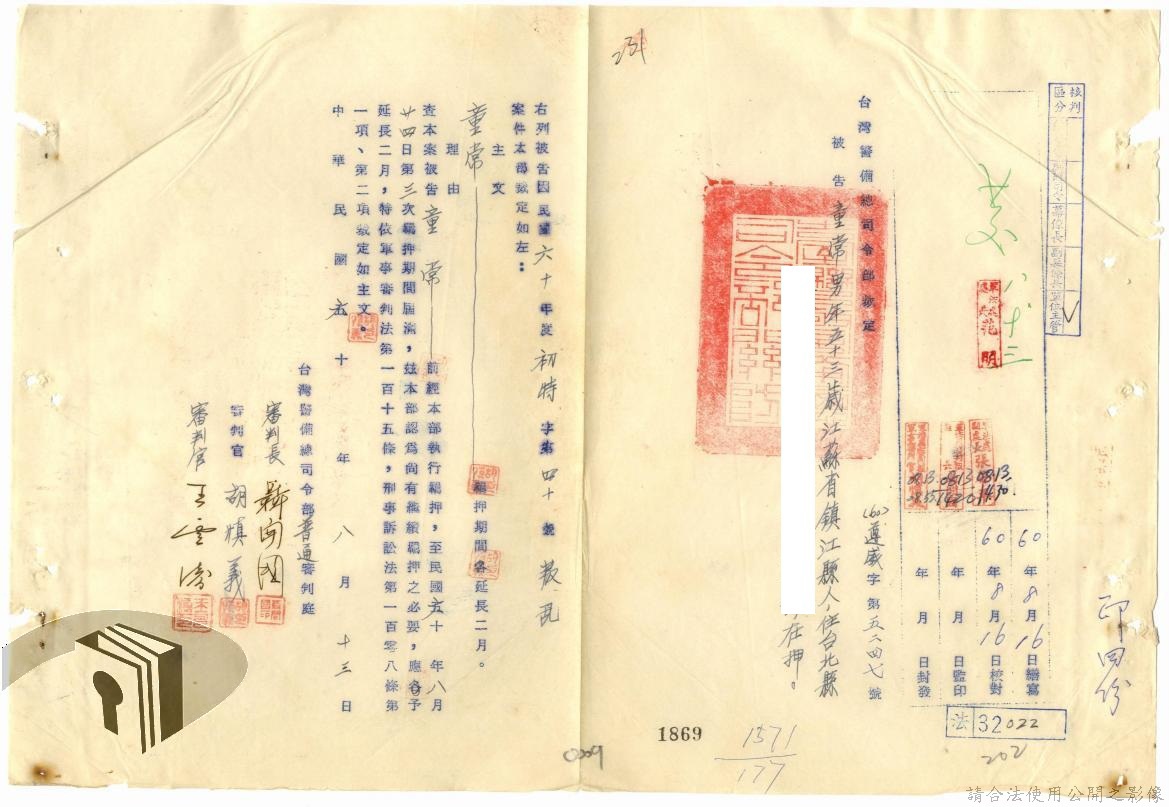 核判
區分
60年8月16日繕寫
60年8月16日校對
年　月　日監印
年　月　日封發
法 32022
202
印四份
231
台灣警備總司令部裁定
(60)遵威字第五二四七號
被告 童常 男 年五十三歲 江蘇省鎮江縣人 住台北縣
在押。
1869
1571
177
右列被告因民國六十年度初特字第四十號叛亂
案件本部裁定如左:
主文
童常
羈押期間各延長二月。
理由
查本案被告童常前經本部執行羈押,至民國六十年八月
廿四日第三次羈押期間屆滿,茲本部認為尚有繼續羈押之必要,應各予
延長二月,特依軍事審判法第一百十五條,刑事訴訟法第一百零八條第
一項、第二項裁定如主文。
中華民國六十年八月十三日
台灣警備總司令部普通審判庭
審判長
審判官 胡慎義
審判官 王雲濤
0209
請合法使用公開之影像